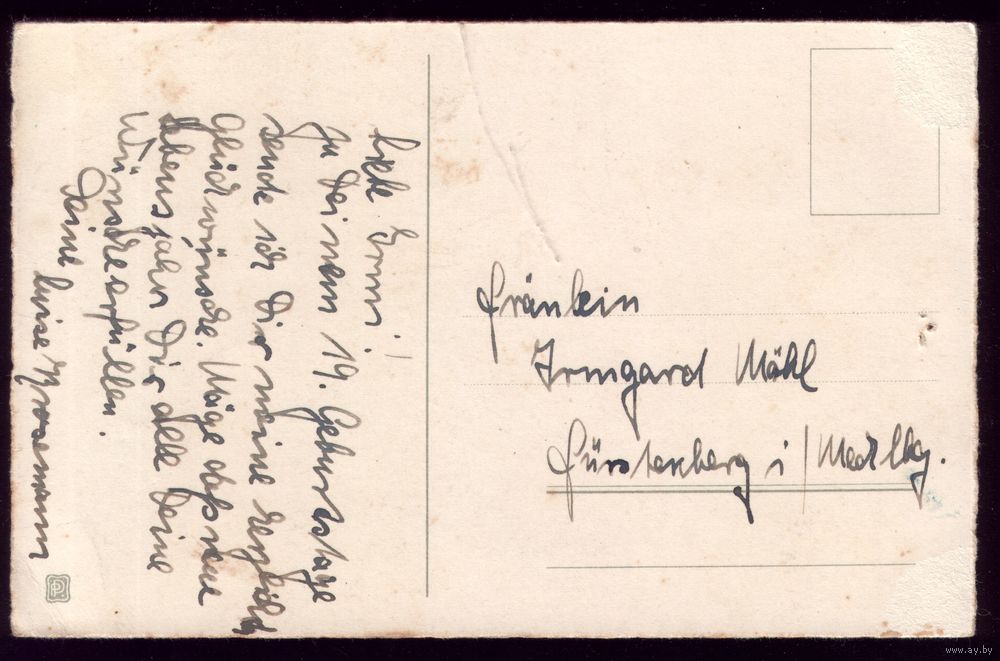 Liebe Irmi!
Zu Deinem 19. Geburtstage
sende ich Dir meine herzlich
Glückwünsche. Möge das neue
Lebensjahr Dir alle Deine
Wünsche erfüllen.
Deine Luise
Fräulein
Irmgard Mähl
Fürstenberg i/Mecklbg.
www.ay.by